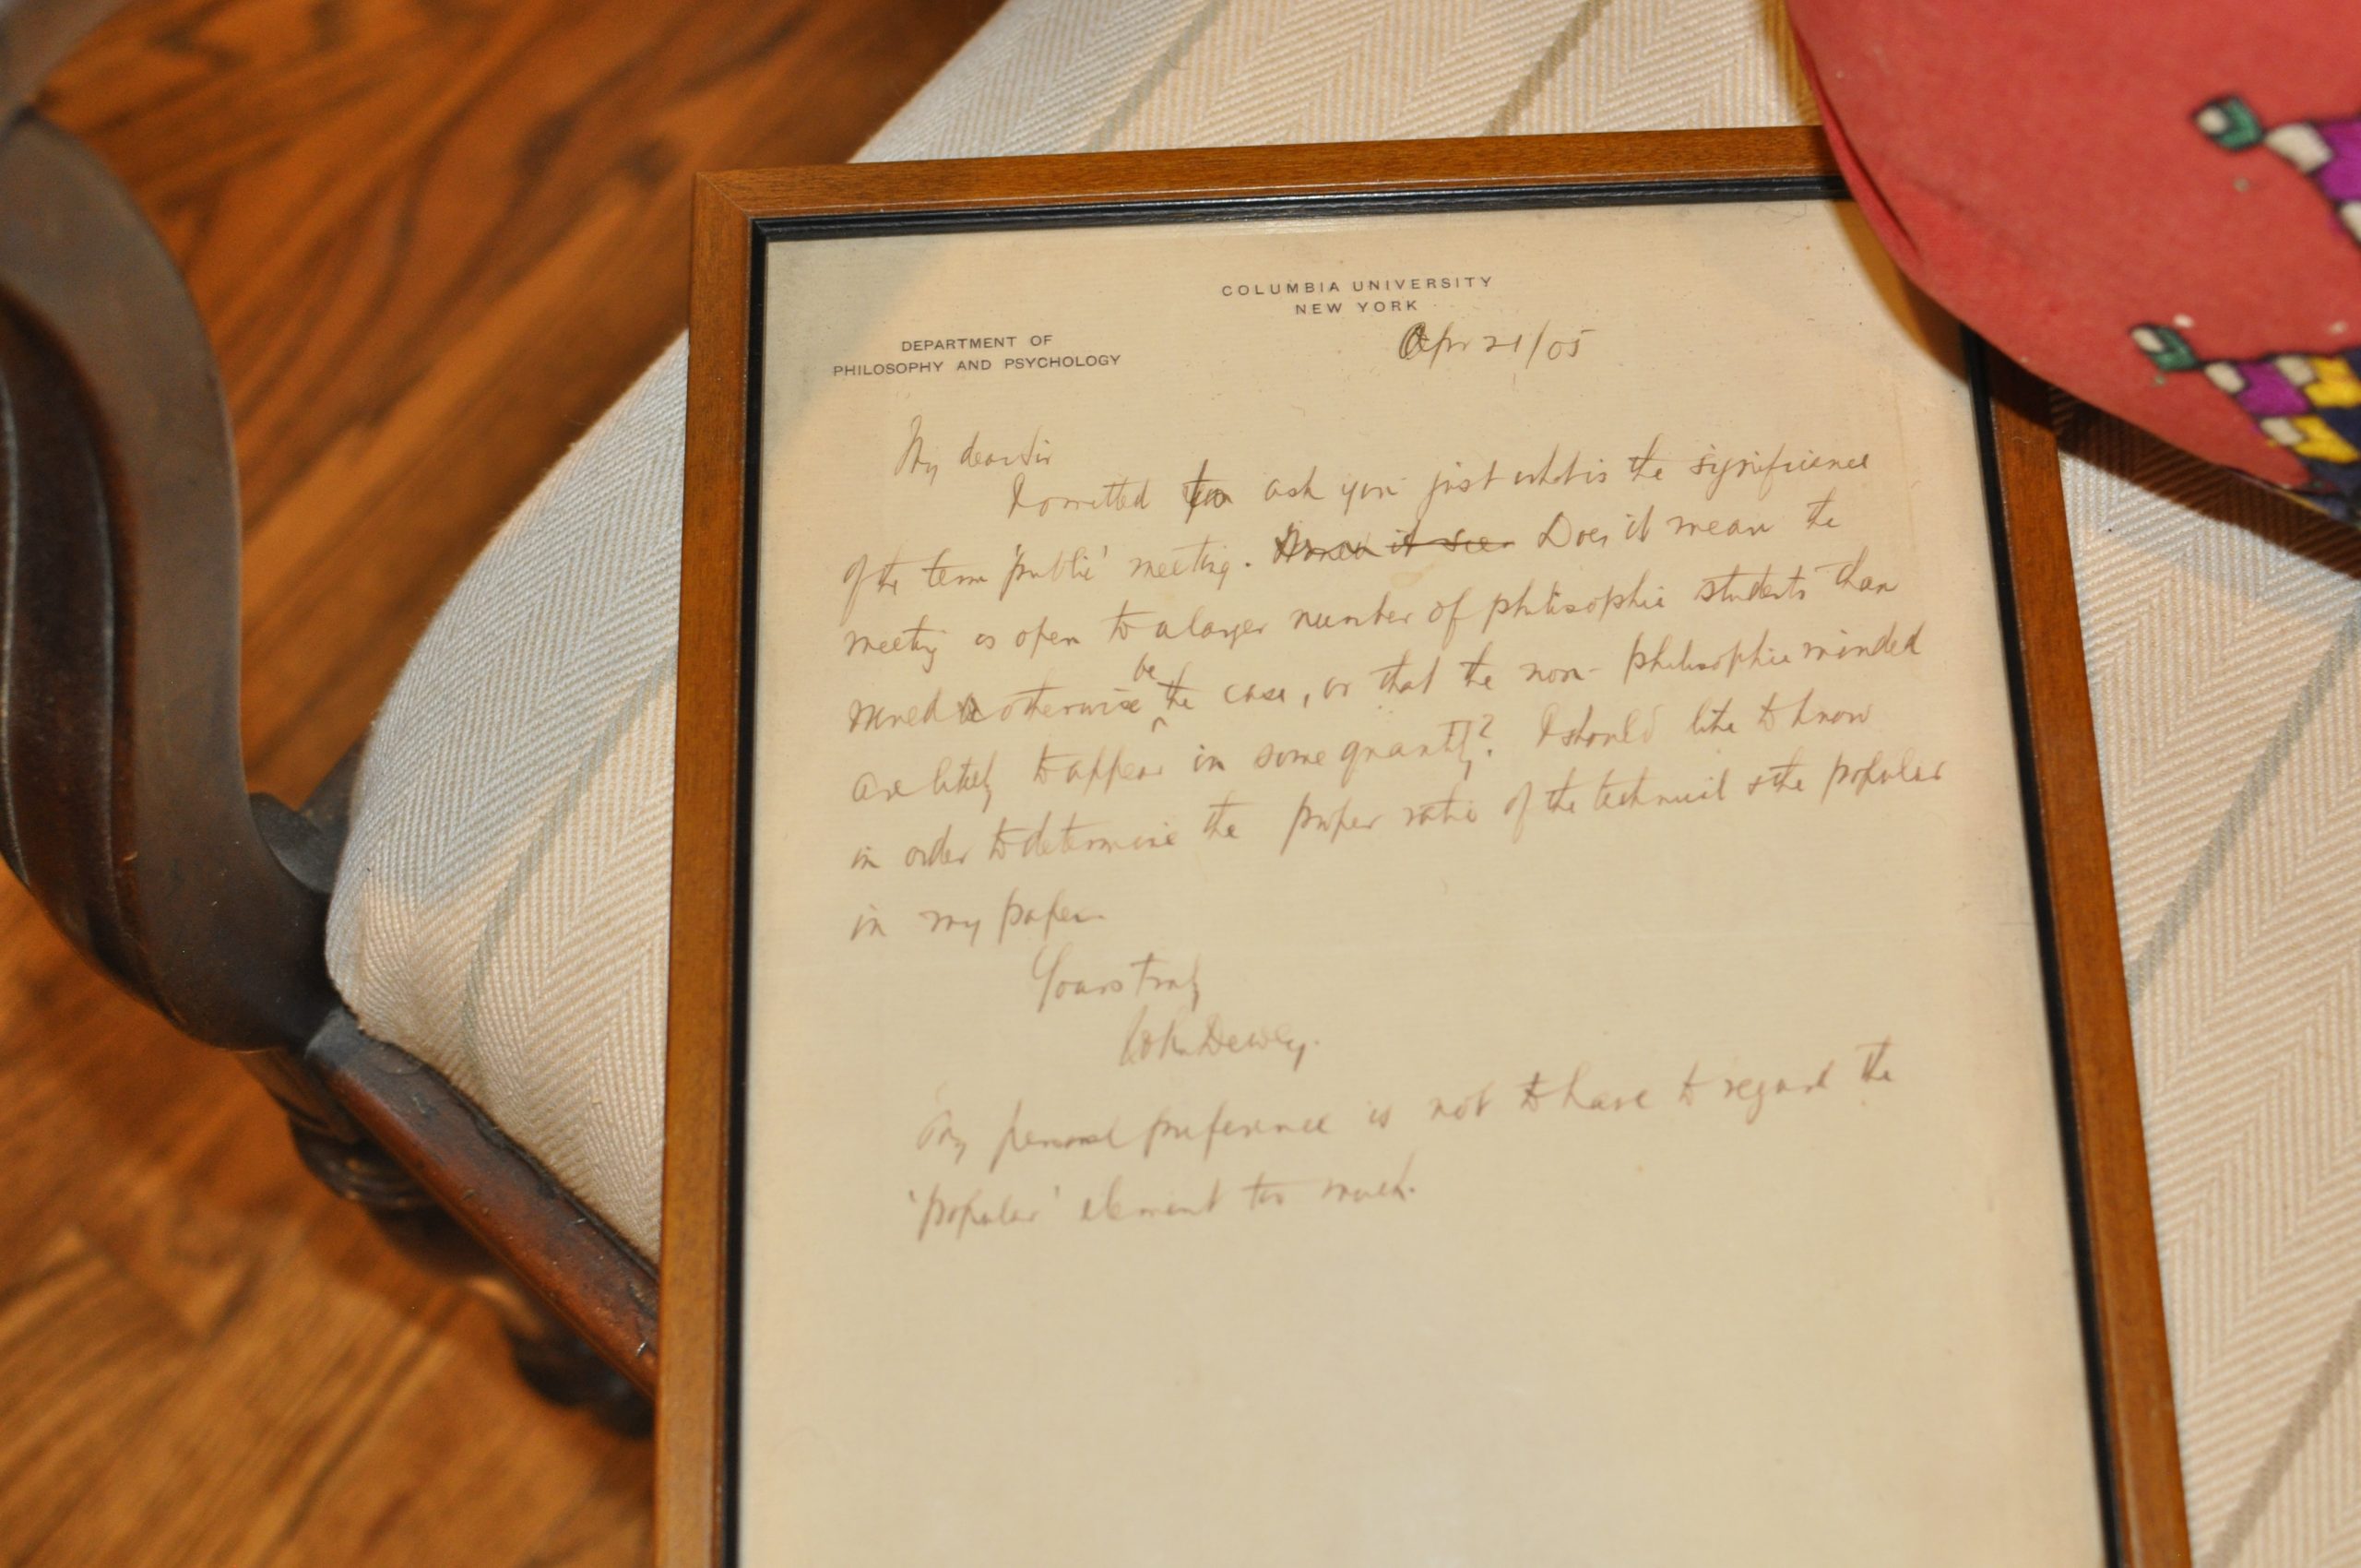 COLUMBIA UNIVERSITY
NEW YORK
Apr 21/05
DEPARTMENT OF
PHILOSOPHY AND PSYCHOLOGY
My dear Sir
I omitted to ask you just what is the significance
of the term 'public' meeting. Does it mean the
meeting is open to a larger number of philosophic students than
otherwise be the case, or that the non-philosophic minded
are likely to appear in some quantity? I should like to know
in order to determine the proper ratio of the technical & the popular
in my paper.
Yours truly
John Dewey.
My personal preference is not to have to regard the
'popular' element too much.